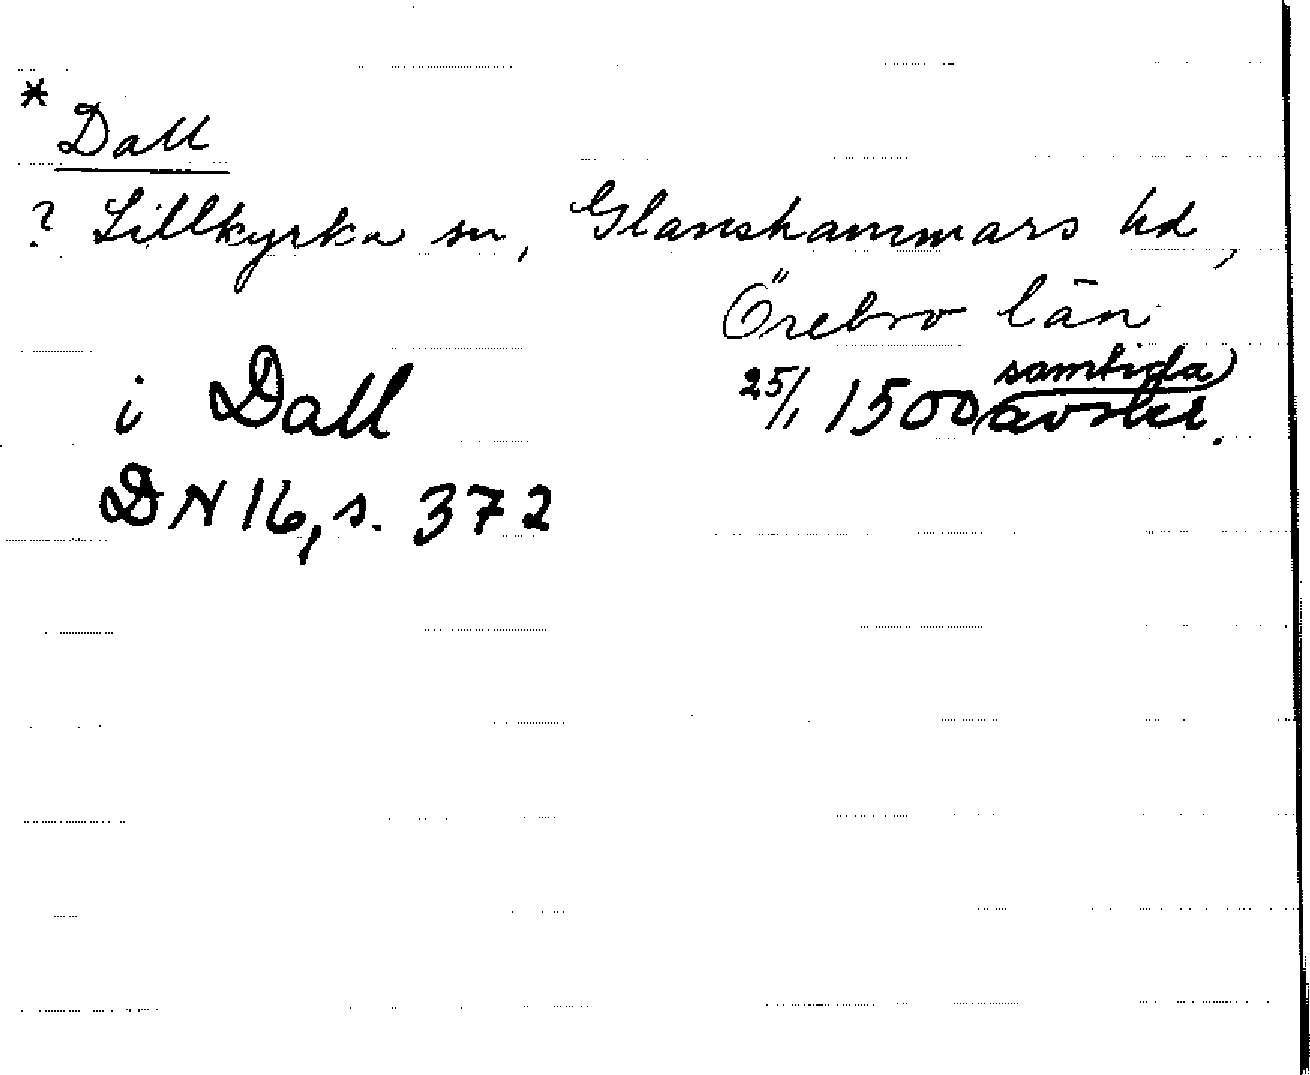 * Dall
? Lillkyrka sn, Glanshammars hd,
Örebro län
i Dall 25/1 1500 samtida avskr.
DN 16, s. 372